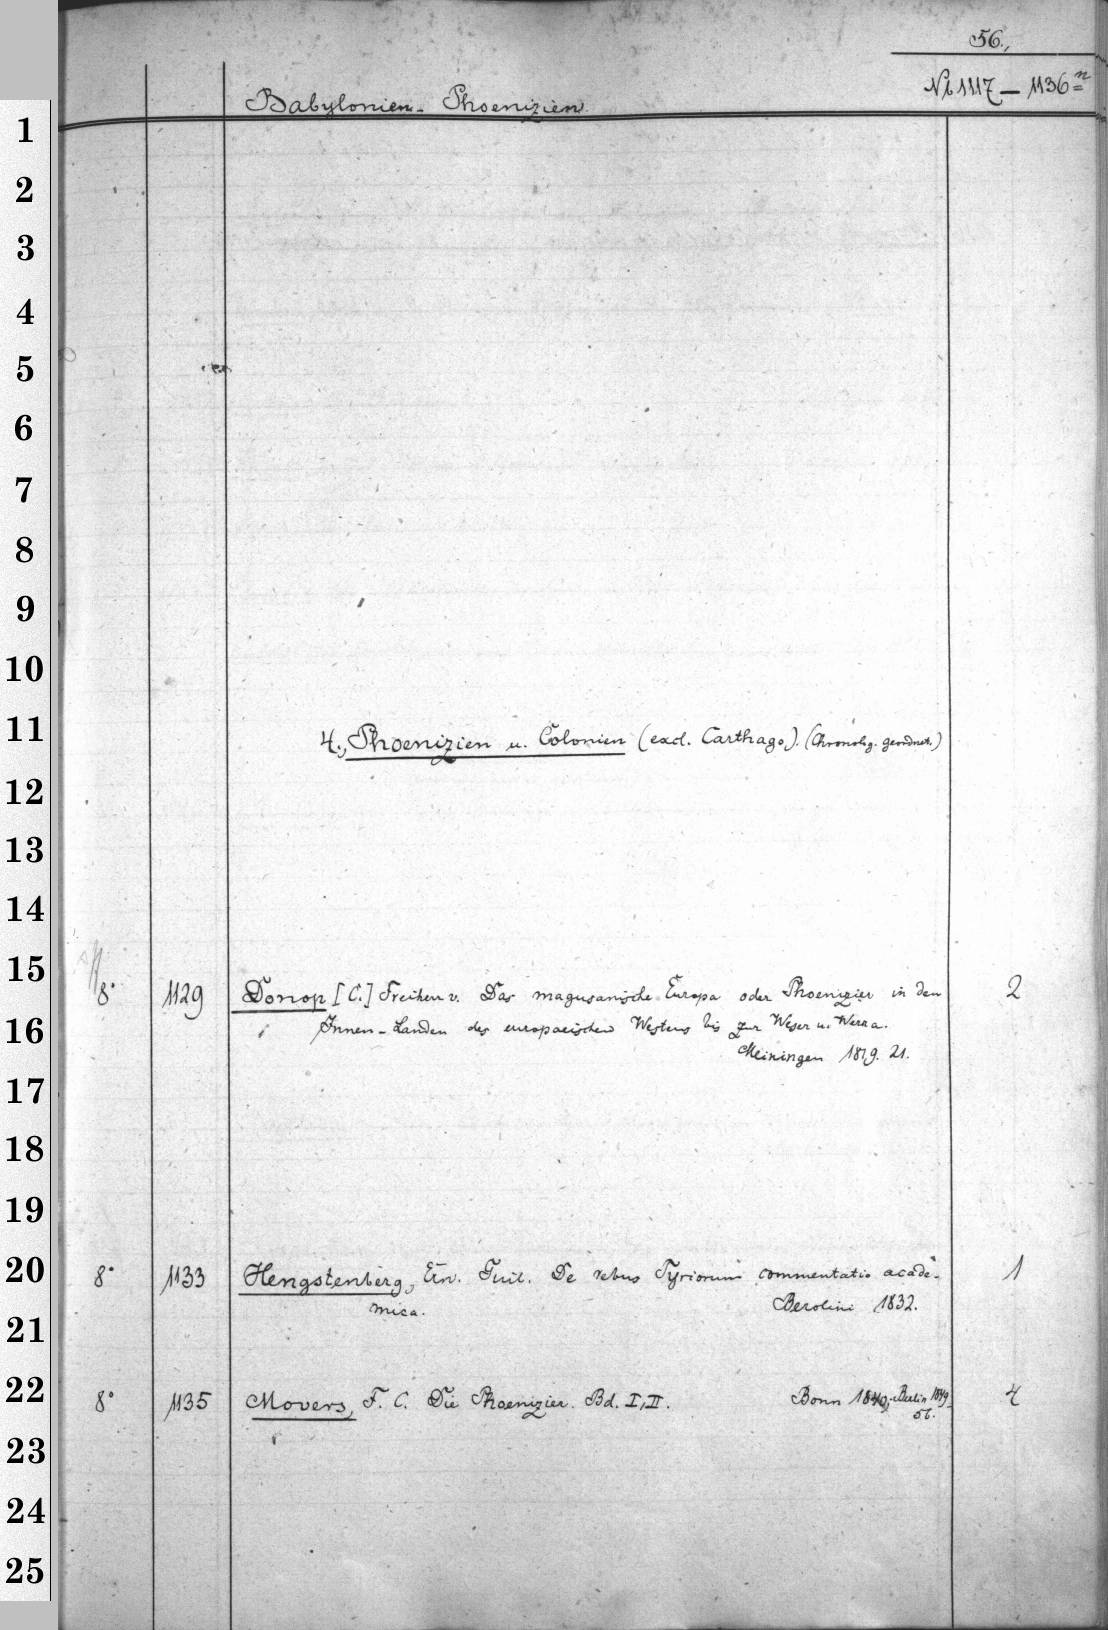 56.
№ 1117 — 1136 n
Babylonien - Phoenizien.
1
2
3
4
5
6
7
8
9
10
11
4., Phoenizien u. Colonien (excl. Carthago). (Chronolog. geordnet.)
12
13
14
15
8° 1129 Donop [C.] Freiherr v. Das magusanische Europa oder Phoenizier in den 2
16
Innen-Landen des europaeischen Westens bis zur Weser u. Werra.
Meiningen 1819. 21.
17
18
19
20
8° 1133 Hengstenberg, Ern. Guil. De rebus Tyriorum commentatio acade- 1
mica. Berolini 1832.
21
22
8° 1135 Movers, F. C. Die Phoenizier. Bd. I, II. Bonn 1840; Berlin 1849 4
56.
23
24
25